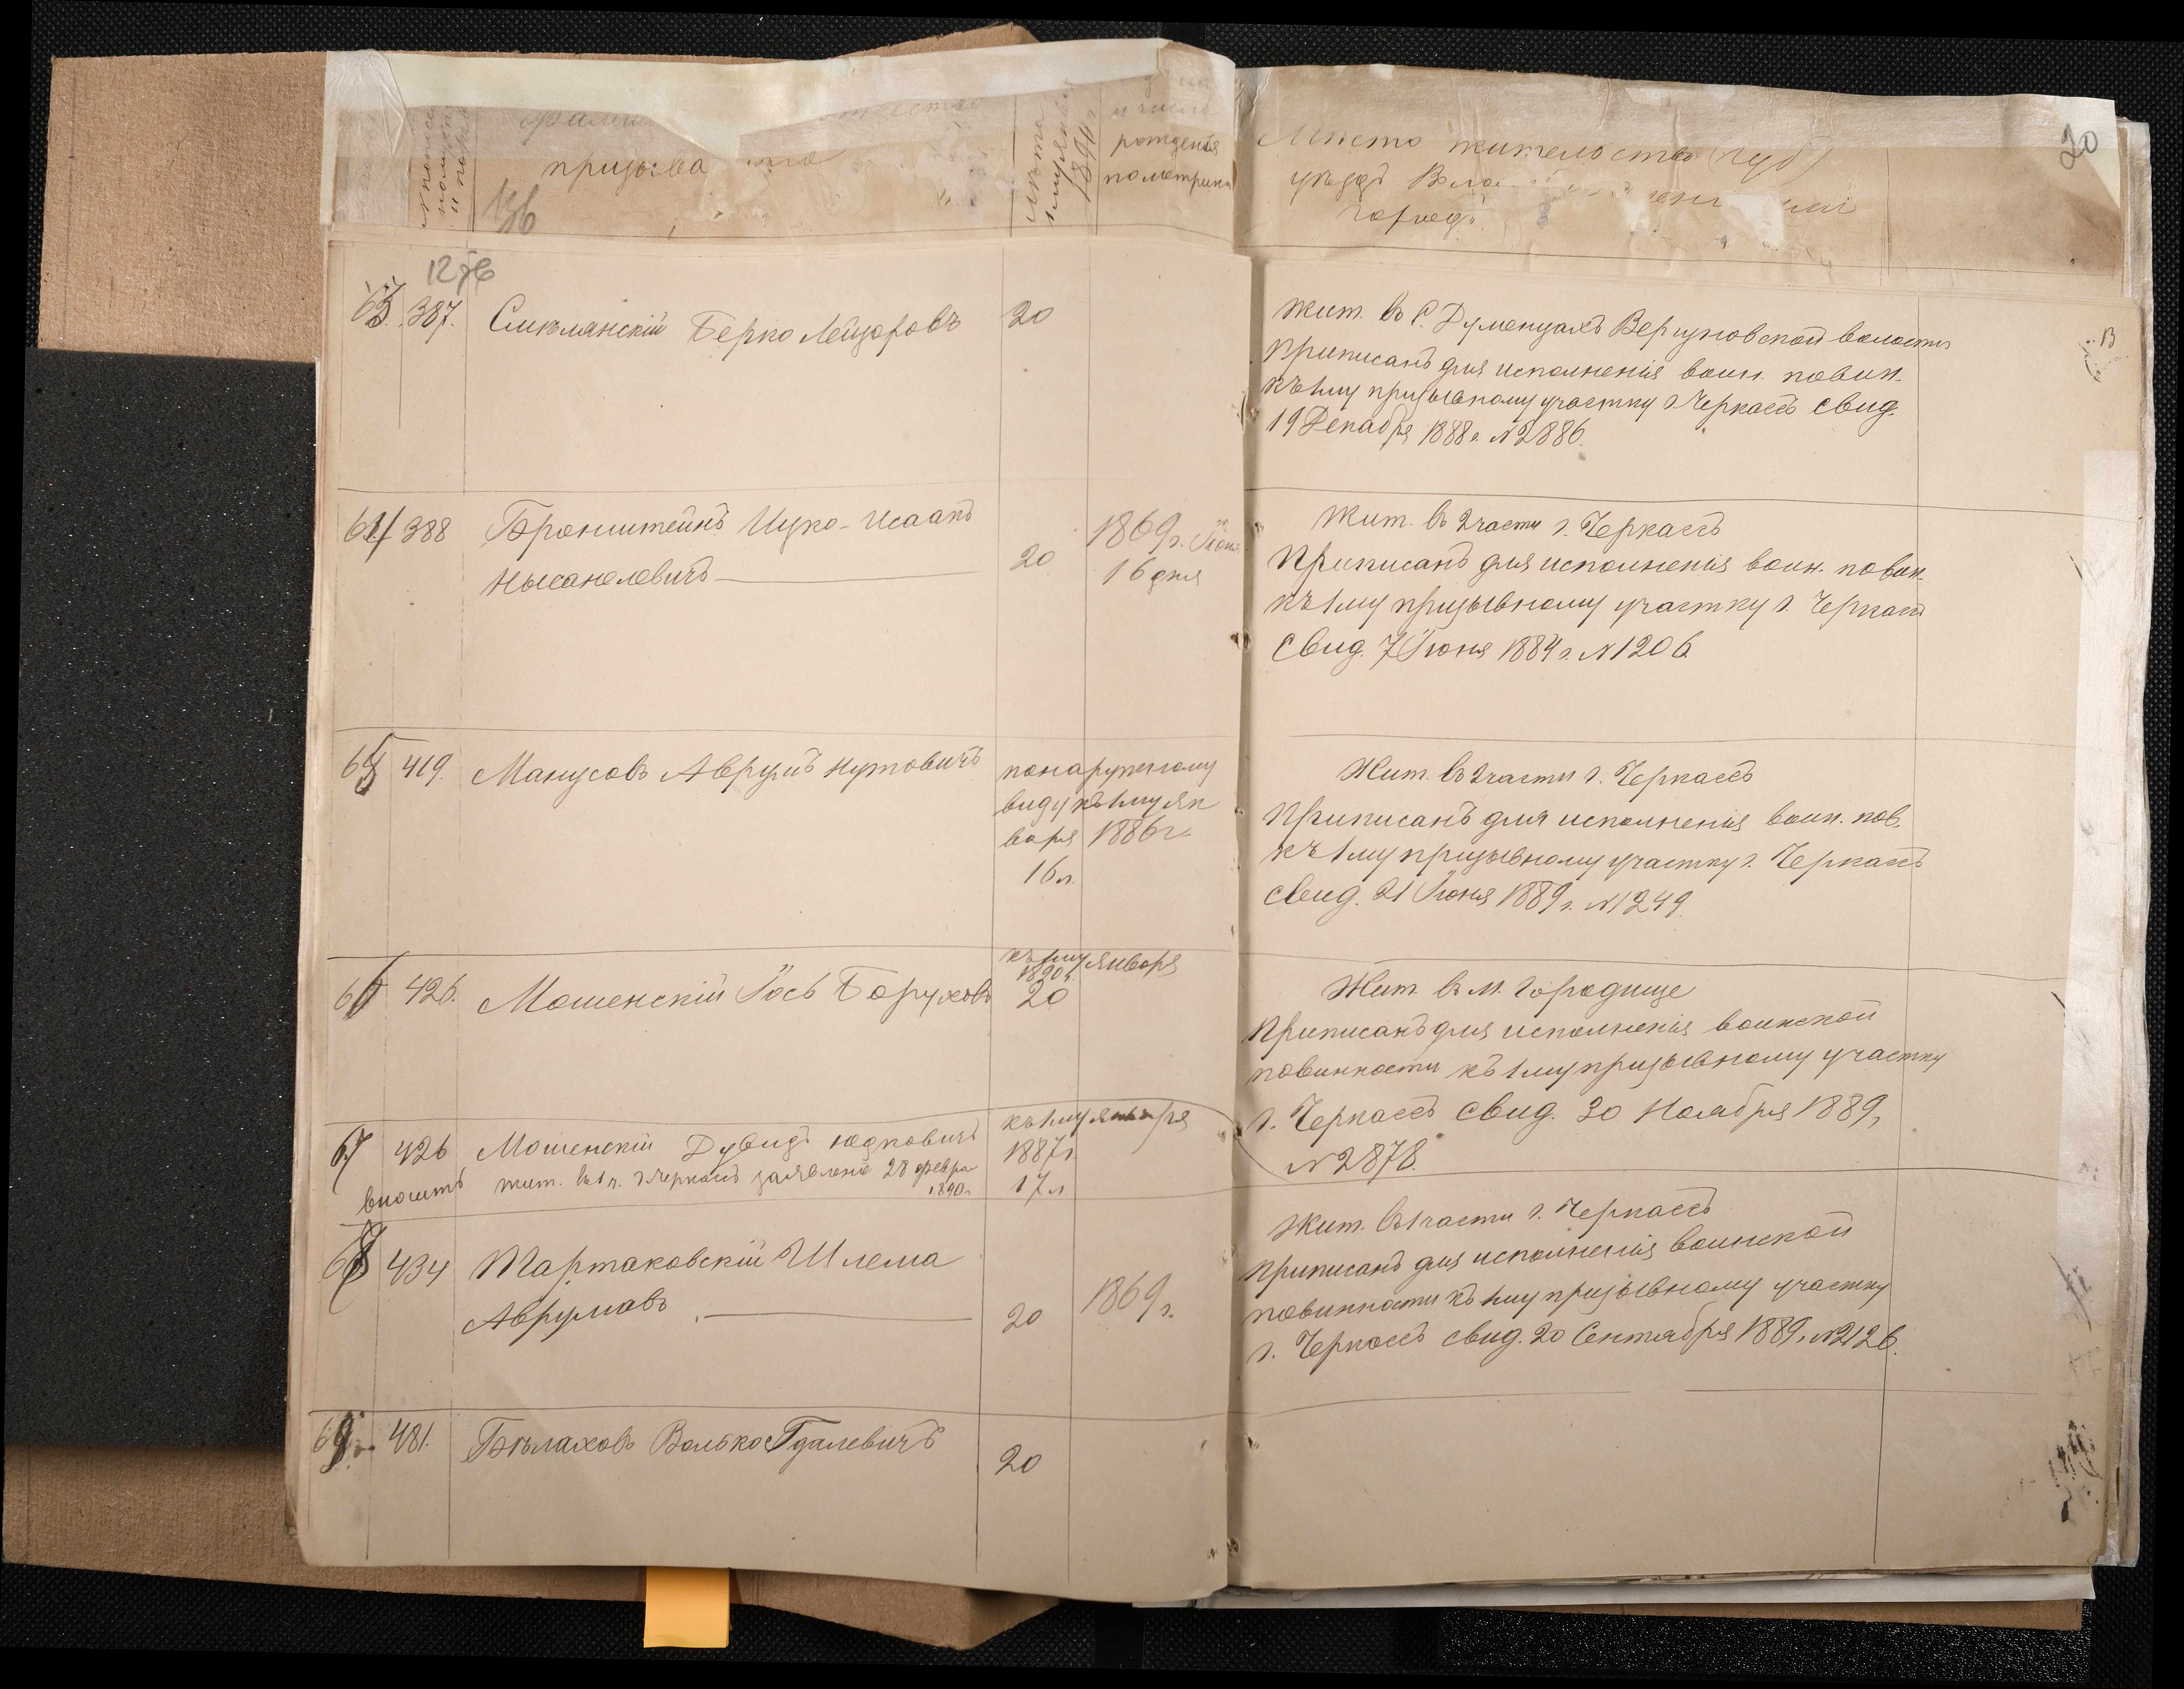 20
призыва
1890 г.
и число
рождения
по метрикѣ
Мѣсто жительства (губ)
уѣздъ
городъ
1276
63. 387. Смѣлянскій Берко Лейзоровъ 20
Жит. въ с. Думенцахъ Вергуновской волости
приписанъ для исполненія воин. повин.
къ 1му призывному участку г Черкассъ свид.
19 Декабря 1888 г. N 2886.
64 388 Бронштейнъ Ицко-Исаакъ
Нысанелевичъ 20 1869 г. Іюня
16 дня
Жит. въ 2 части г. Черкассъ
Приписанъ для исполненія воин. повин.
къ 1му призывному участку г. Черкассъ
Свид. 7 Іюня 1884 г. N 1206
65 419. Манусовъ Аврумъ Нутовичъ
по наружному
виду къ 1му Ян
варя 1886 г.
16 л.
Жит. въ 2 части г. Черкассъ
Приписанъ для исполненія воин. пов.
къ 1му призывному участку г. Черкассъ
свид. 21 Іюня 1889 г. N 1249.
къ 1му января
1890 г.
66 426. Мошенскій Іось Боруховъ 20
Жит. въ м. Городище
Приписанъ для исполненія воинской
повинности къ 1му призывному участку
г. Черкассъ свид. 30 Ноября 1889 г.
N 2878.
67 426 Мошенскій Дувидъ Юдковичъ
вносить жит. въ 1 ч. г Черкассъ заявленіе 28 февра
1890 г.
къ 1му января
1887 г.
17 л
68 434 Тартаковскій Шлема
Аврумовъ 20 1869 г.
Жит. въ 1 части г. Черкассъ
Приписанъ для исполненія воинской
повинности къ 1му призывному участку
г. Черкассъ свид. 20 Сентября 1889 г. N 2126.
69 481. Бѣлаховъ Волько Гдалевичъ 20